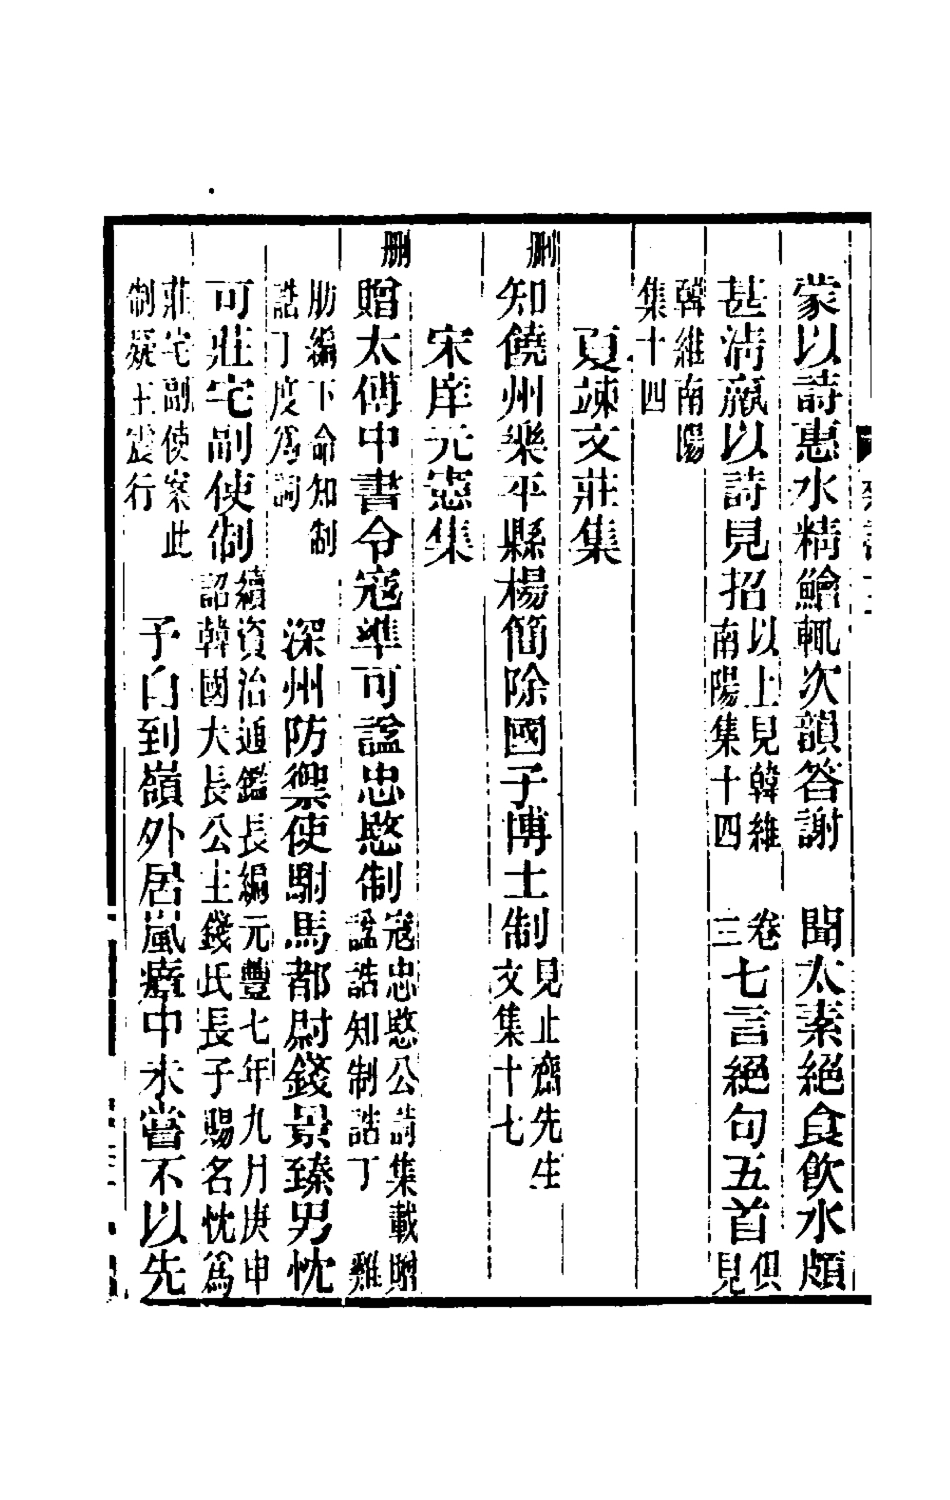 蒙以詩惠水精鱠輒次韻答謝　聞太素絕食飲水頗
甚清羸以詩見招以上見韓維南陽集十四　卷三七言絕句五首俱見
韓維南陽集十四
夏竦文莊集
刪知饒州樂平縣楊簡除國子博士制見止齋先生文集十七
宋庠元憲集
刪贈太傅中書令寇準可諡忠愍制寇忠愍公詩集載贈諡誥知制誥丁　雞
肪編下命知制誥丁度為詞　深州防禦使駙馬都尉錢景臻男忱
可莊宅副使制續資治通鑑長編元豐七年九月庚申詔韓國大長公主錢氏長子賜名忱為
莊宅副使案此制疑王震行　予自到嶺外居嵐瘴中未嘗不以先